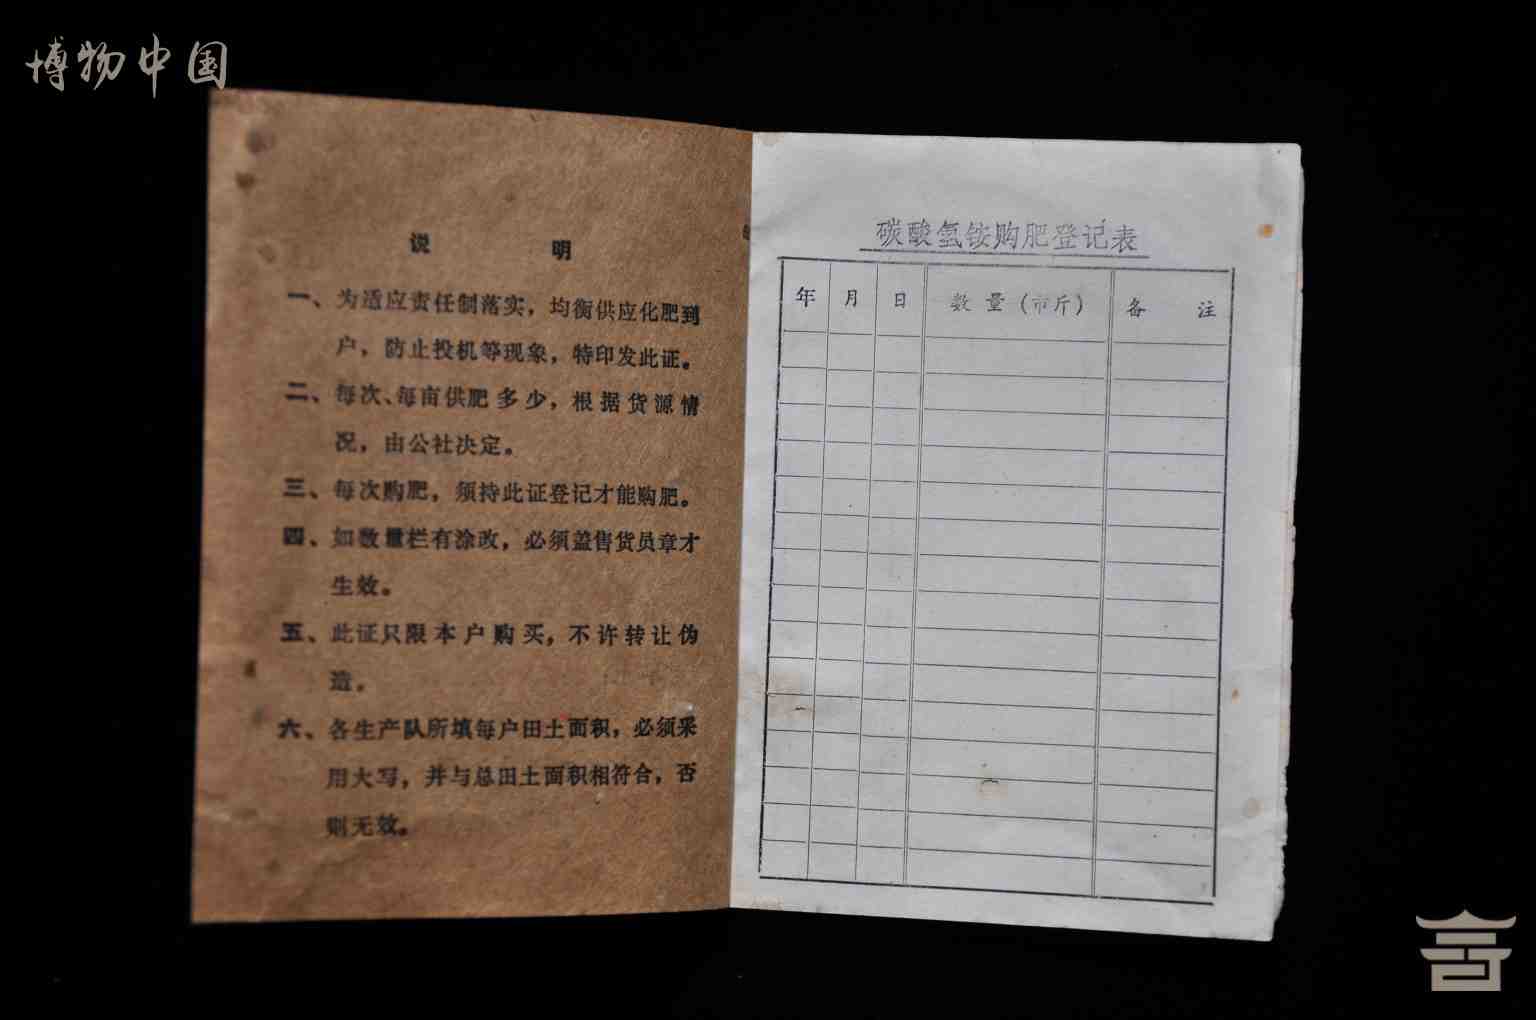 博物中国
说 明
一、为适应责任制落实，均衡供应化肥到
户，防止投机等现象，特印发此证。
二、每次、每亩供肥多少，根据货源情
况，由公社决定。
三、每次购肥，须持此证登记才能购肥。
四、如数量栏有涂改，必须盖售货员章才
生效。
五、此证只限本户购买，不许转让伪
造。
六、各生产队所填每户田土面积，必须采
用大写，并与总田土面积相符合，否
则无效。
碳酸氢铵购肥登记表
年 月 日 数量(市斤) 备 注